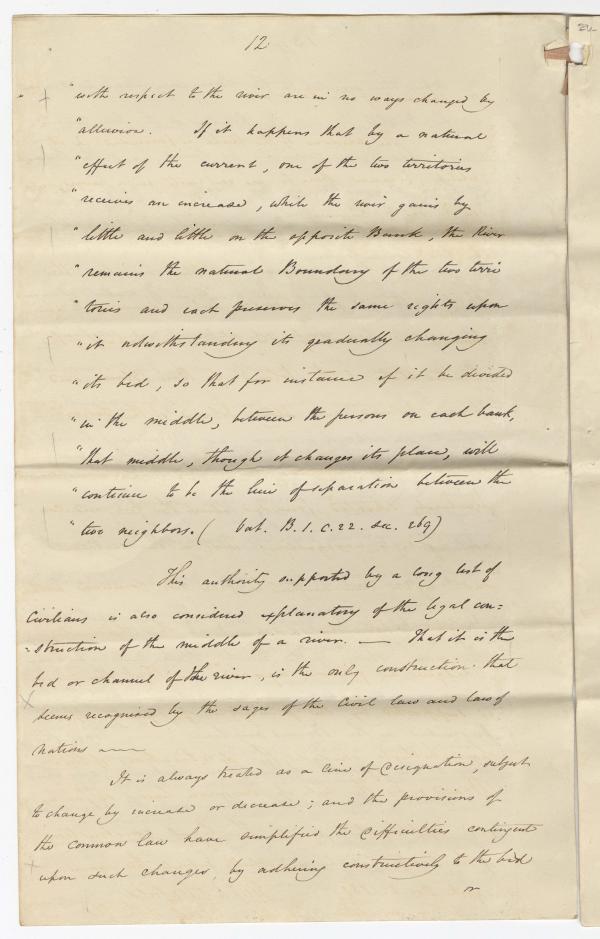 12
"with respect to the river are in no ways changed by
"alluvion. If it happens that by a natural
"effect of the current, one of the two territories
"receives an increase, while the river gains by
"little and little on the opposite Bank, the River
"remains the natural Boundary of the two terri
"tories and each preserves the same rights upon
"it notwithstanding its gradually changing
"its bed, so that for instance if it be divided
"in the middle, between the persons on each bank,
"that middle, though it changes its place, will
"continue to be the line of separation between the
"two neighbors. ( Vat. B. 1. C. 22. Sec. 269)
This authority supported by a long list of
Civilians is also considered explanatory of the legal con=
=struction of the middle of a river. — That it is the
bed or channel of the river, is the only construction that
seems recognised by the sages of the Civil law and law of
nations ——
It is always treated as a line of designation, subject
to change by increase or decrease; and the provisions of
the common law have simplified the difficulties contingent
upon such changes, by adhering constructively to the bed
or